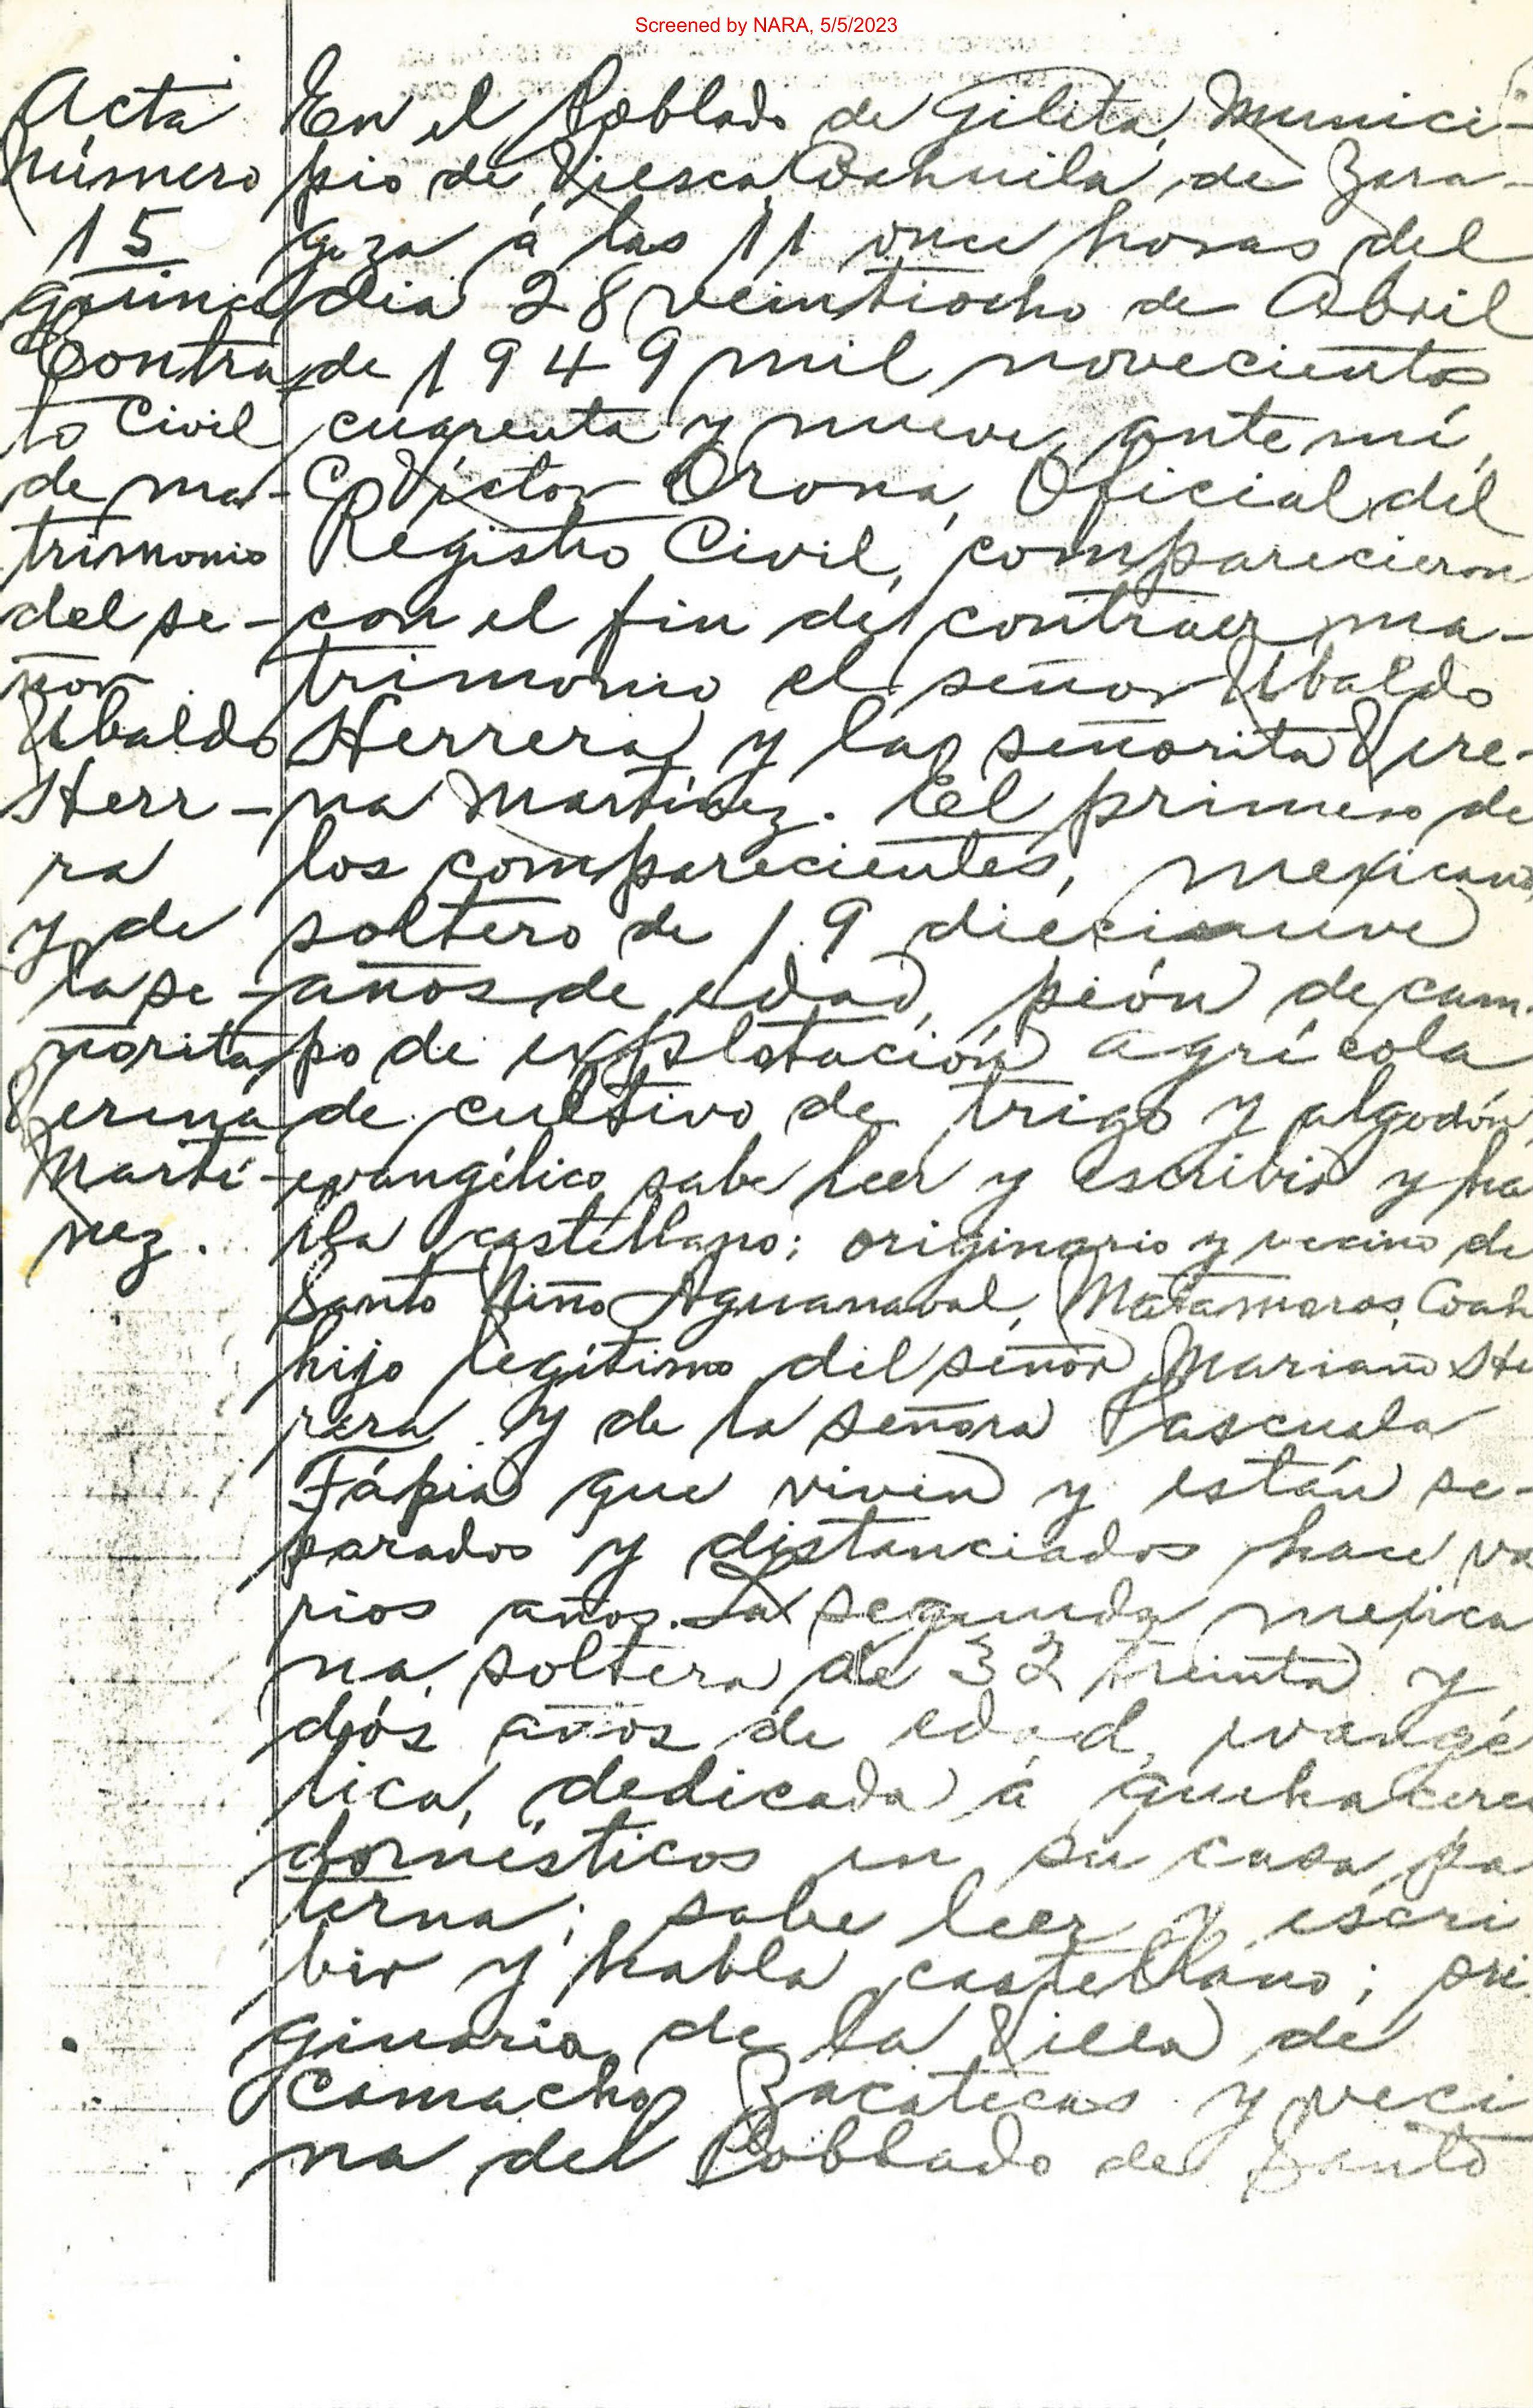 Screened by NARA, 5/5/2023
Acta
Número
15
quince
Contra
to Civil
de ma-
trimonio
del se-
ñor
Ubaldo
Herr-
ra
y de
la se-
ñorita
Verena
Martí-
nez.
En el Poblado de Gilita, Munici-
pio de Viesca, Coahuila, de Zara-
goza á las 11 once horas del
dia 28 veintiocho de Abril
de 1949 mil novecientos
cuarenta y nueve, ante mí,
C. Víctor Orona, Oficial del
Registro Civil, comparecieron
con el fin de contraer ma-
trimonio el señor Ubaldo
Herrera y la señorita Vere-
na Martínez. El primero de
los comparecientes, mexicano,
soltero de 19 diecinueve
años de edad, peón de cam-
po de explotación agrícola
de cultivo de trigo y algodón,
evangélico sabe leer y escribir y ha
bla castellano; originario y vecino de
Santo Niño Aguanaval, Matamoros, Coah
hijo legítimo del señor Mariano He
rrera y de la señora Pascuala
Tápia que viven y están se-
parados y distanciados hace va
rios años. La segunda mexica
na, soltera de 32 treinta y
dós años de edad, evangé
lica, dedicada á quehaceres
domésticos en su casa pa
terna; sabe leer y escri
bir y habla castellano; ori.
ginaria de la Villa de
Camacho, Zacatecas y veci
na del Poblado de Santo